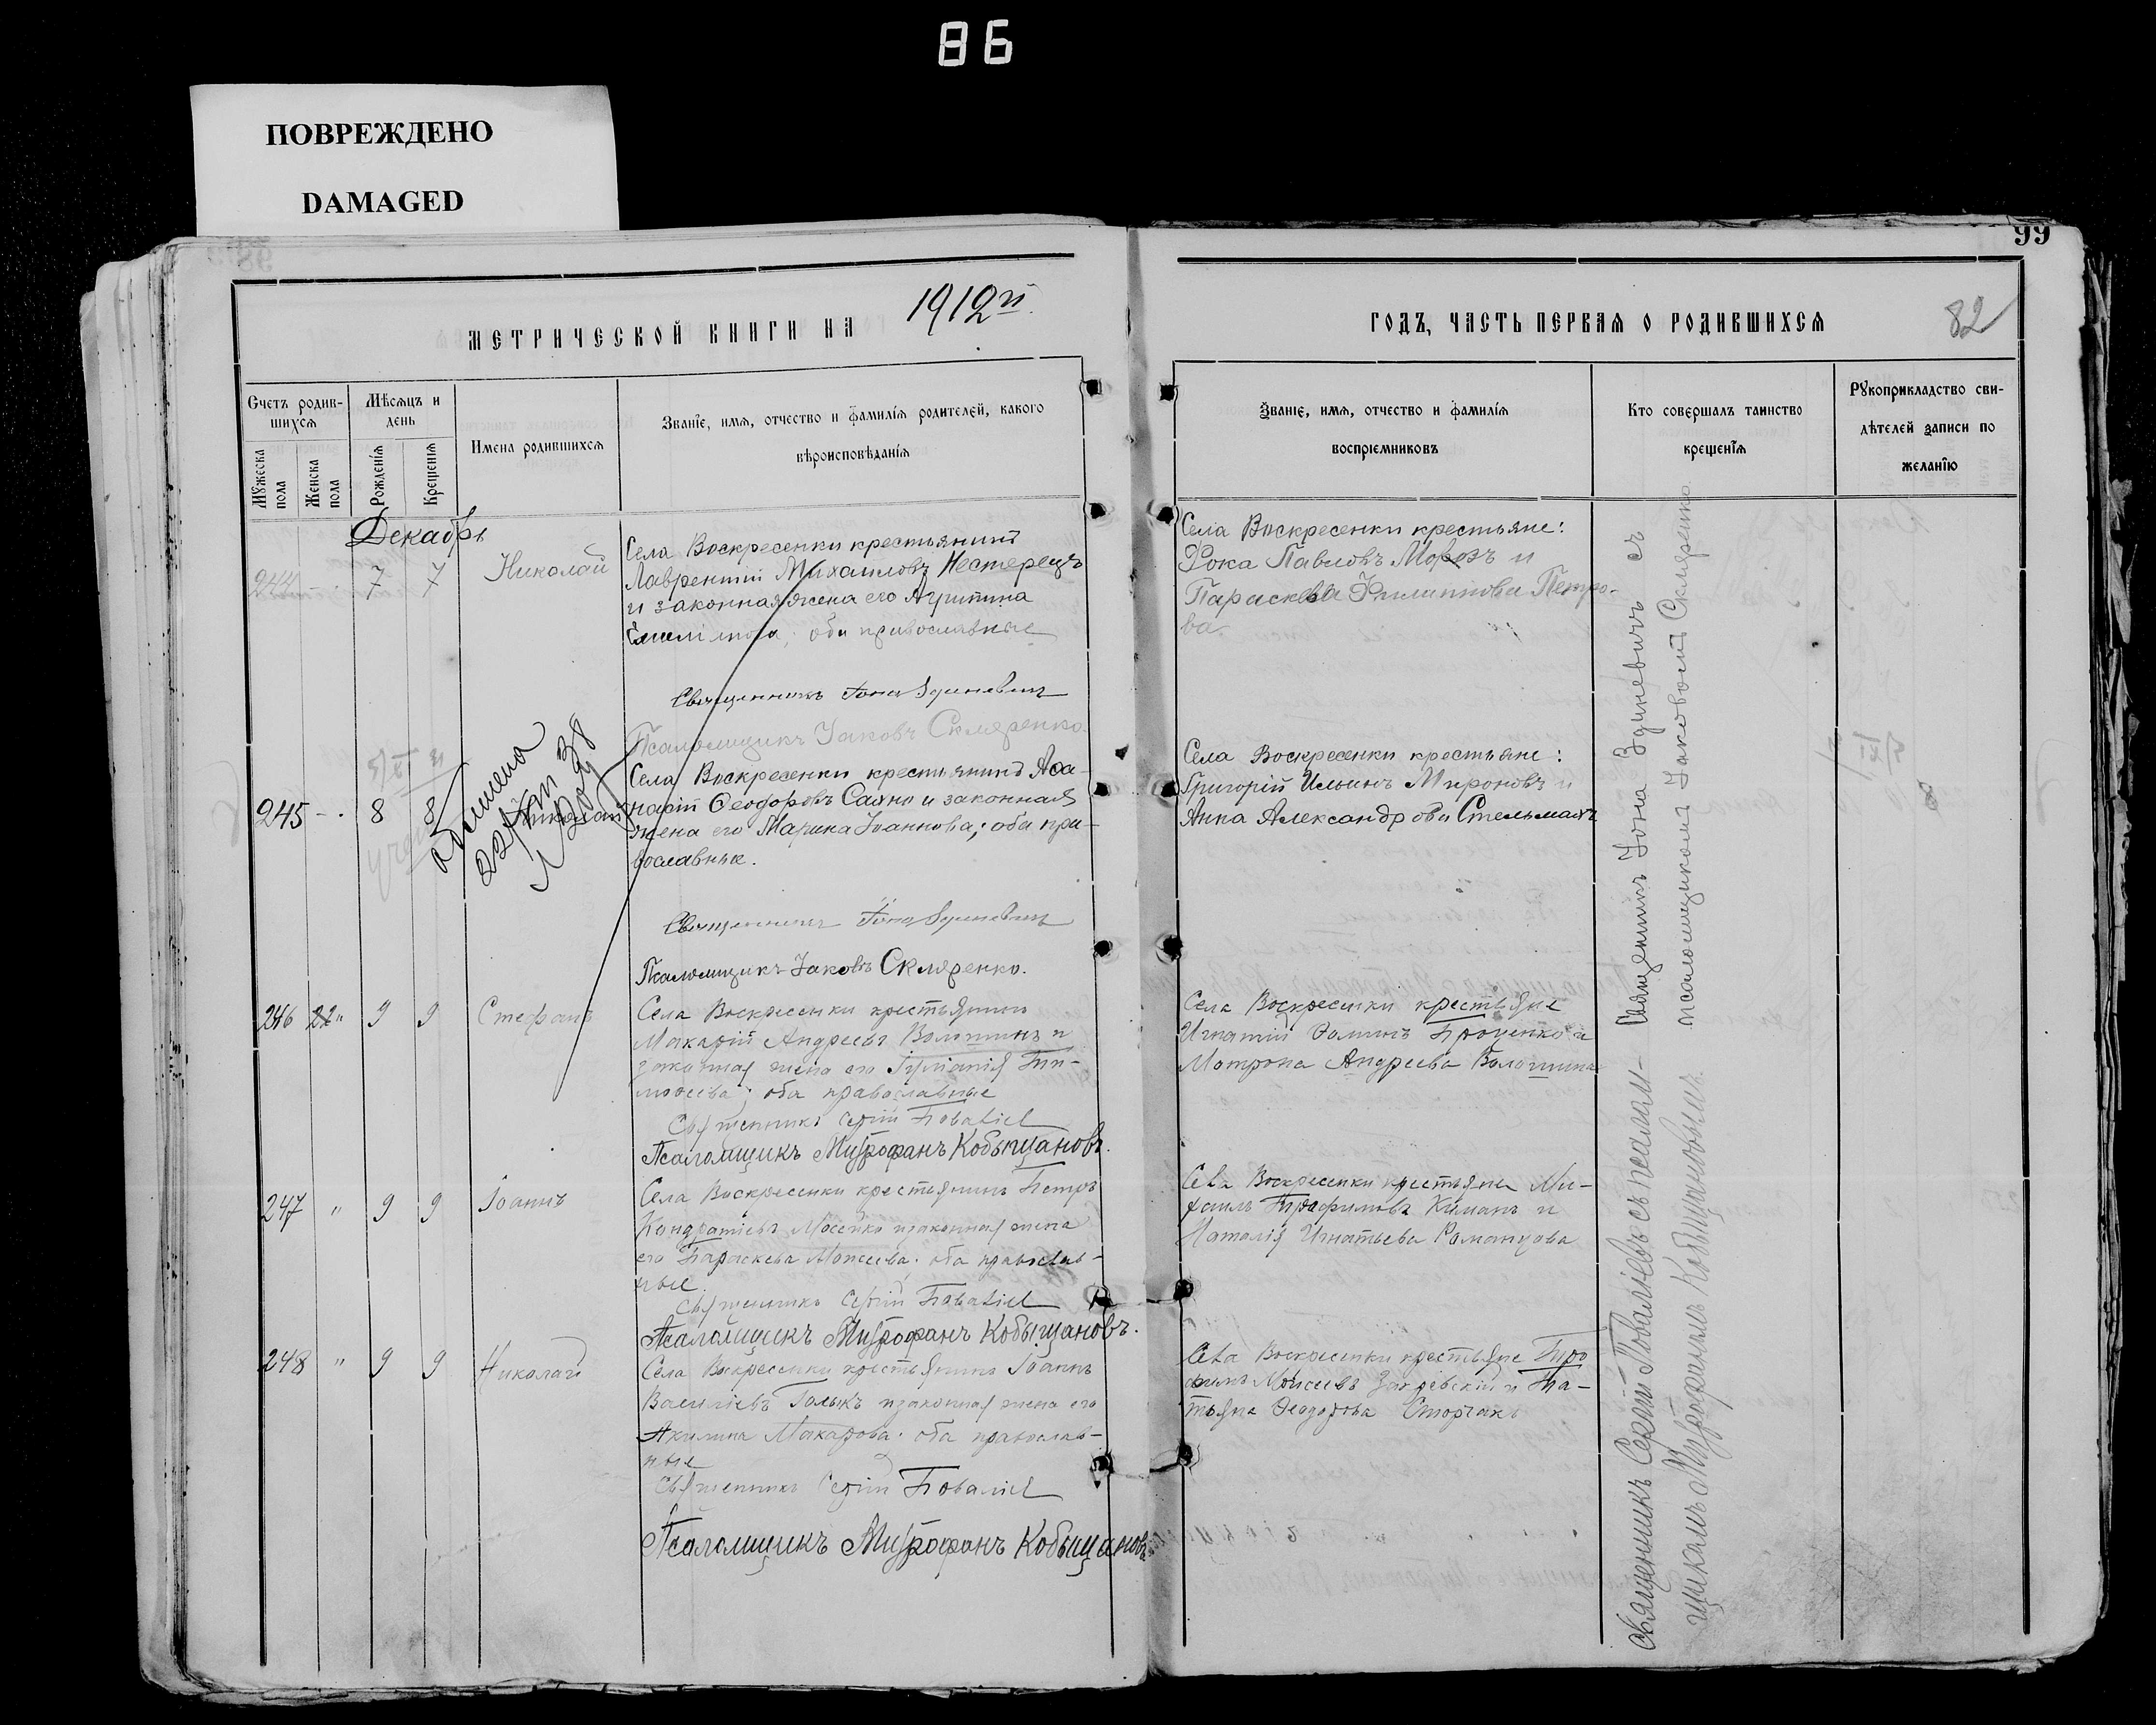 86
ПОВРЕЖДЕНО
DAMAGED
99
82
МЕТРИЧЕСКОЙ КНИГИ НА 1912й
ГОДЪ, ЧАСТЬ ПЕРВАЯ О РОДИВШИХСЯ
Счетъ родив-
шихся
Мужеска
пола
Женска
пола
Мѣсяцъ и
день
Рожденія
Крещенія
Имена родившихся
Званіе, имя, отчество и фамилія родителей, какого
вѣроисповѣданія
Званіе, имя, отчество и фамилія
воспріемниковъ
Кто совершалъ таинство
крещенія
Рукоприкладство сви-
дѣтелей записи по
желанію
Декабрь
244 - . 7 7 Николай
Села Воскресенки крестьянинъ
Лаврентій Михаиловъ Нестерецъ
и законная жена его
оба православные
Священникъ Іона
Псаломщикъ Іаковъ Скляренко.
Села Воскресенки крестьяне:
Фока Павловъ Морозъ и
Параскева Филиппова Петро-
ва.
245 - . 8 8 Николай
Села Воскресенки крестьянинъ Афа-
насій Ѳеодоровъ Сахно и законная
жена его Марина Іоаннова; оба пра-
вославные.
Священникъ Іона
Псаломщикъ Іаковъ Скляренко.
Села Воскресенки крестьяне:
Григорій Ильинъ Мироновъ и
Анна Александрова Стельмахъ
246 22 " 9 9 Стефанъ
Села Воскресенки крестьянинъ
Макарій Андреевъ Волошинъ и
законная жена его Ти-
моѳеева; оба православные
Священникъ Сергій Поваліевъ
Псаломщикъ Митрофанъ Кобыщановъ.
Села Воскресенки крестьяне
Игнатій Проценко и
Матрона Андреева Волошина
247 " 9 9 Іоаннъ
Села Воскресенки крестьянинъ Петръ
Кондратіевъ Мосейко и законная жена
его Параскева Моисеева. оба православ-
ные.
Священникъ Сергій Поваліевъ
Псаломщикъ Митрофанъ Кобыщановъ.
Села Воскресенки крестьяне Ми-
хаилъ Трофимовъ и
Наталія Игнатьева Романцова
248 " 9 9 Николай
Села Воскресенки крестьянинъ Іоаннъ
Василіевъ и законная жена его
Акилина Макарова. оба православ-
ные
Священникъ Сергій Поваліевъ
Псаломщикъ Митрофанъ Кобыщановъ
Села Воскресенки крестьяне Тро
фимъ Моисеевъ и Та-
тьяна Ѳеодорова Сторчакъ
Священникъ Іона съ
псаломщикомъ Іаковомъ Скляренко
Священникъ Сергій Поваліевъ съ псалом-
щикомъ Митрофаномъ Кобыщановымъ.